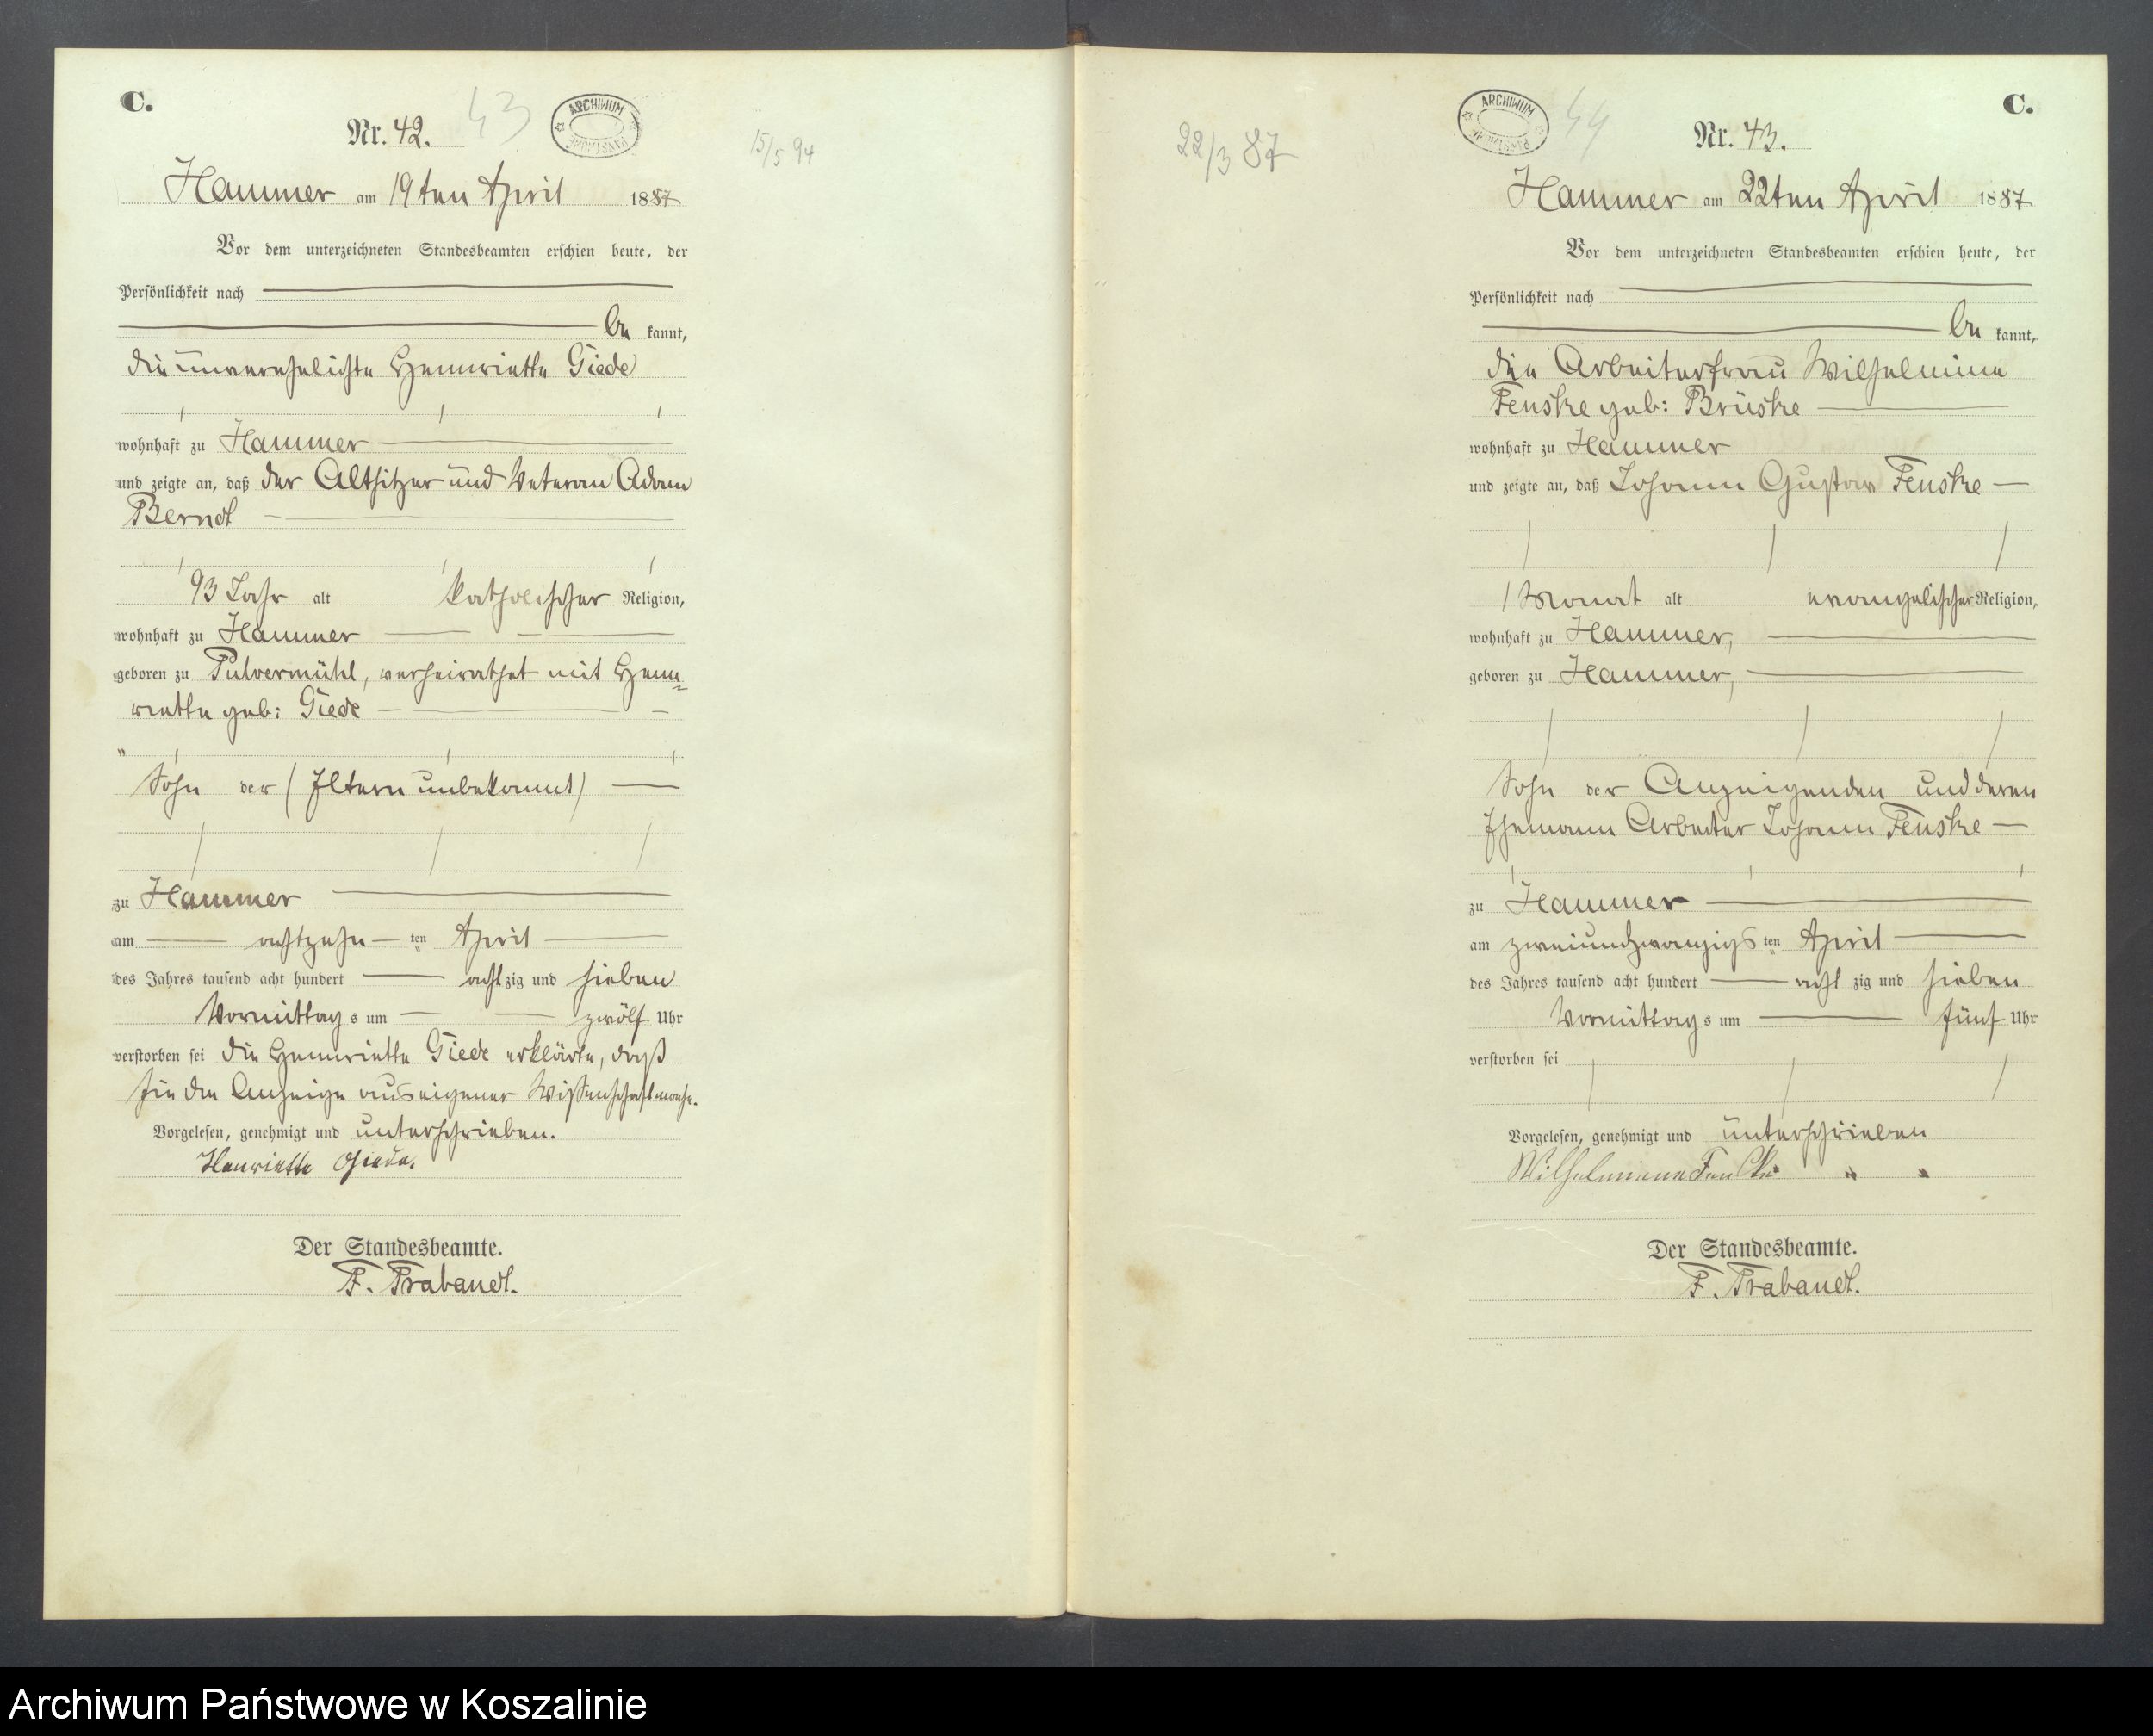 C.
Nr. 42.
43
ARCHIWUM
PAŃSTWOWE
15/5 94
Hammer am 19ten April 1887
Vor dem unterzeichneten Standesbeamten erschien heute, der
Persönlichkeit nach
be kannt,
die unverehelichte Hennriette Giede
wohnhaft zu Hammer
und zeigte an, daß der Altsitzer und Veteran Adam
Berndt
93 Jahr alt katholischer Religion,
wohnhaft zu Hammer
geboren zu Pulvermühl, verheirathet mit Henn-
riette geb: Giede
Sohn der (Eltern unbekannt)
zu Hammer
am achtzehn ten April
des Jahres tausend acht hundert acht zig und sieben
Vormittag s um zwölf Uhr
verstorben sei die Hennriette Giede erklärte, daß
sie die Anzeige aus eigener Wissenschaft mache.
Vorgelesen, genehmigt und unterschrieben.
Henriette Giede.
Der Standesbeamte.
F. Trabandt.
22/3 87
ARCHIWUM
PAŃSTWOWE
44
C.
Nr. 43.
Hammer am 22ten April 1887
Vor dem unterzeichneten Standesbeamten erschien heute, der
Persönlichkeit nach
be kannt,
die Arbeiterfrau Wilhelmine
Fenske geb: Brüske
wohnhaft zu Hammer
und zeigte an, daß Johann Gustav Fenske
1 Monat alt evangelischer Religion,
wohnhaft zu Hammer,
geboren zu Hammer,
Sohn der Anzeigenden und deren
Ehemann Arbeiter Johann Fenske
zu Hammer
am zweiundzwanzigs ten April
des Jahres tausend acht hundert acht zig und sieben
Vormittag s um fünf Uhr
verstorben sei
Vorgelesen, genehmigt und unterschrieben
Wilhelmiene Fenske
Der Standesbeamte.
F. Trabandt.
Archiwum Państwowe w Koszalinie